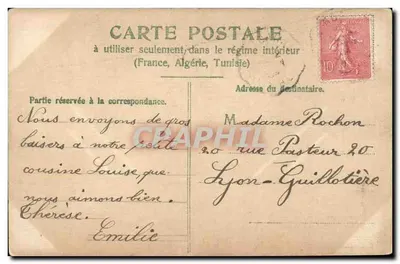 CARTE POSTALE
à utiliser seulement dans le régime intérieur
(France, Algérie, Tunisie)
10
Partie réservée à la correspondance.
Adresse du destinataire.
Nous envoyons de gros
baisers à notre petite
cousine Louise, que
nous aimons bien.
Thérèse.
Emilie
Madame Rochon
20 rue Pasteur 20
Lyon-Guillotière
CPAPHIL